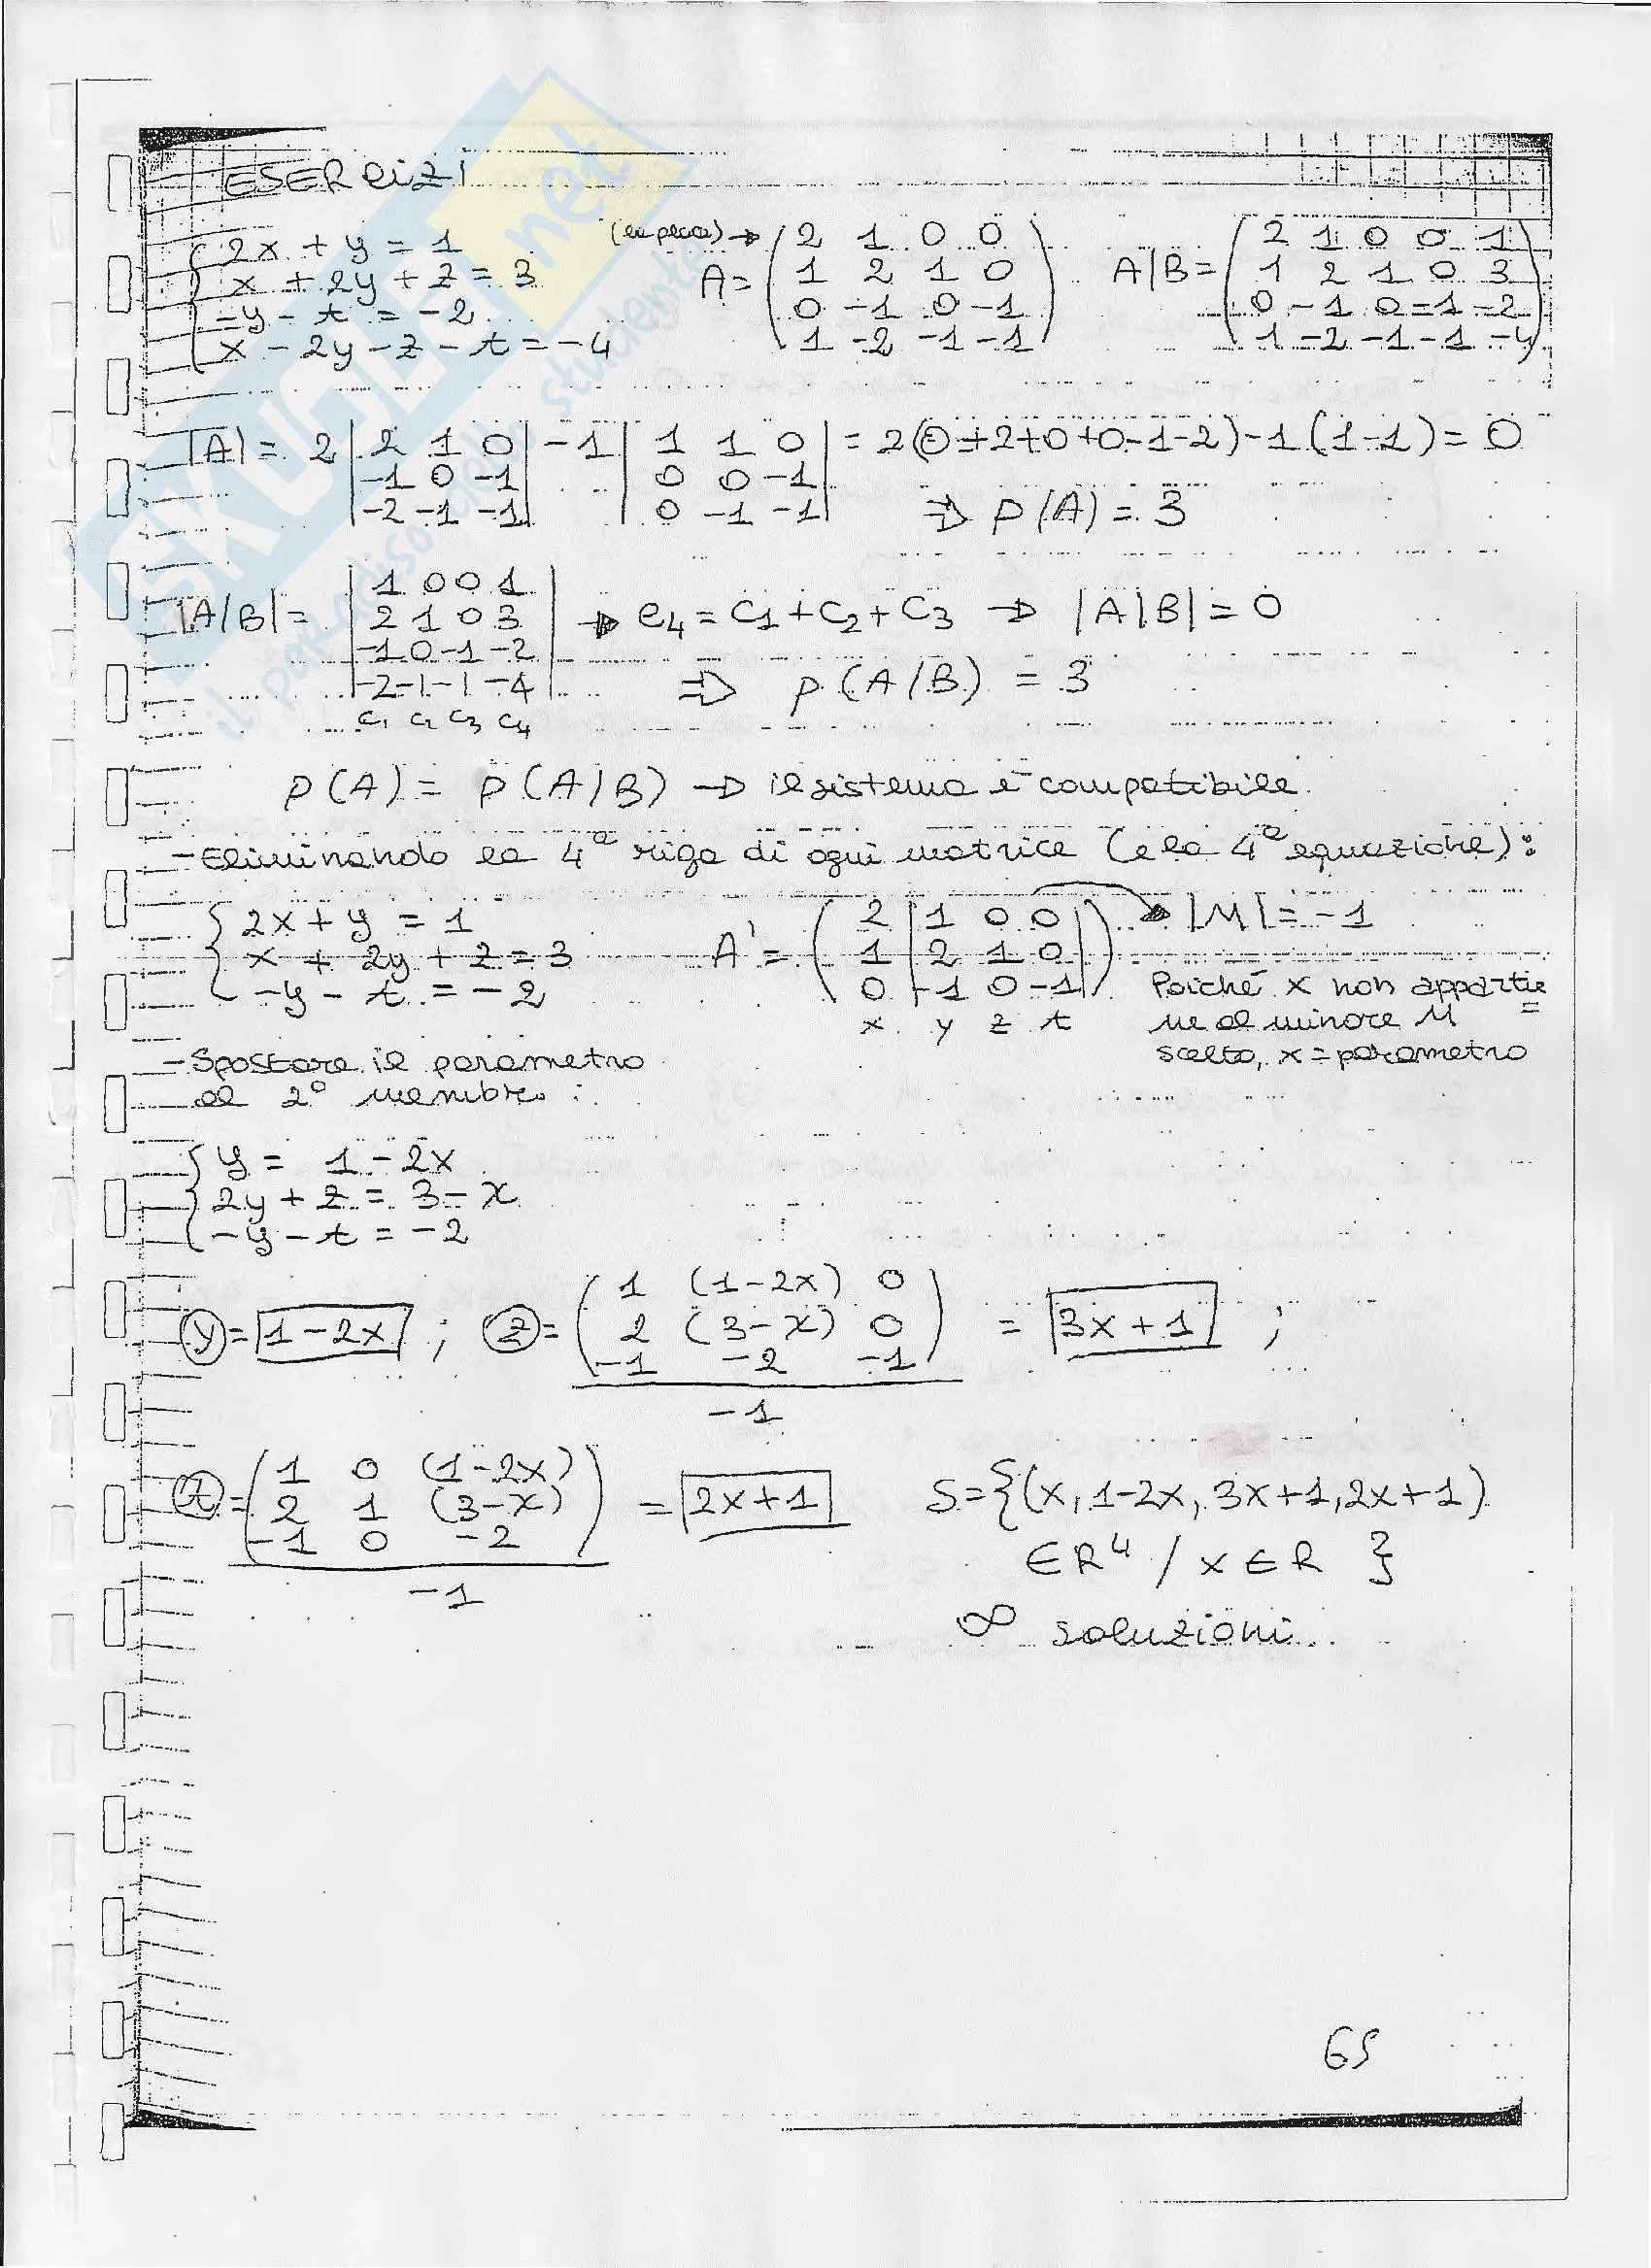 ESERCIZI
{2x + y = 1
x + 2y + z = 3
-y - t = -2
x - 2y - z - t = -4
(laplace) → A = (2 1 0 0
1 2 1 0
0 -1 0 -1
1 -2 -1 -1)
A|B = (2 1 0 0 1
1 2 1 0 3
0 -1 0 -1 -2
1 -2 -1 -1 -4)
|A| = 2 |2 1 0
-1 0 -1
-2 -1 -1| -1 |1 1 0
0 0 -1
0 -1 -1| = 2(0+2+0+0-1-2)-1(1-1) = 0
⇒ p(A) = 3
|A/B| = |1 0 0 1
2 1 0 3
-1 0 -1 -2
-2 -1 -1 -4|
C1 C2 C3 C4
→ C4 = C1 + C2 + C3 → |A|B| = 0
⇒ p(A/B) = 3
p(A) = p(A/B) → il sistema è compatibile.
- Eliminando la 4ª riga di ogni matrice (e la 4ª equazione):
{2x + y = 1
x + 2y + z = 3
-y - t = -2
A' = (2 |1 0 0|
1 |2 1 0|
0 |-1 0 -1|)
x y z t
→ |M| = -1
Poiché x non appartie=
ne al minore M
scelto, x = parametro
- Spostare il parametro
al 2° membro:
{y = 1 - 2x
2y + z = 3 - x
-y - t = -2
y = 1-2x ; z = (1 (1-2x) 0
2 (3-x) 0
-1 -2 -1)
-1
= 3x+1 ;
t = (1 0 (1-2x)
2 1 (3-x)
-1 0 -2)
-1
= 2x+1
S = {(x, 1-2x, 3x+1, 2x+1)
∈ R⁴ / x ∈ R }
∞ soluzioni
65
SKUOLA.net
il paradiso dello studente